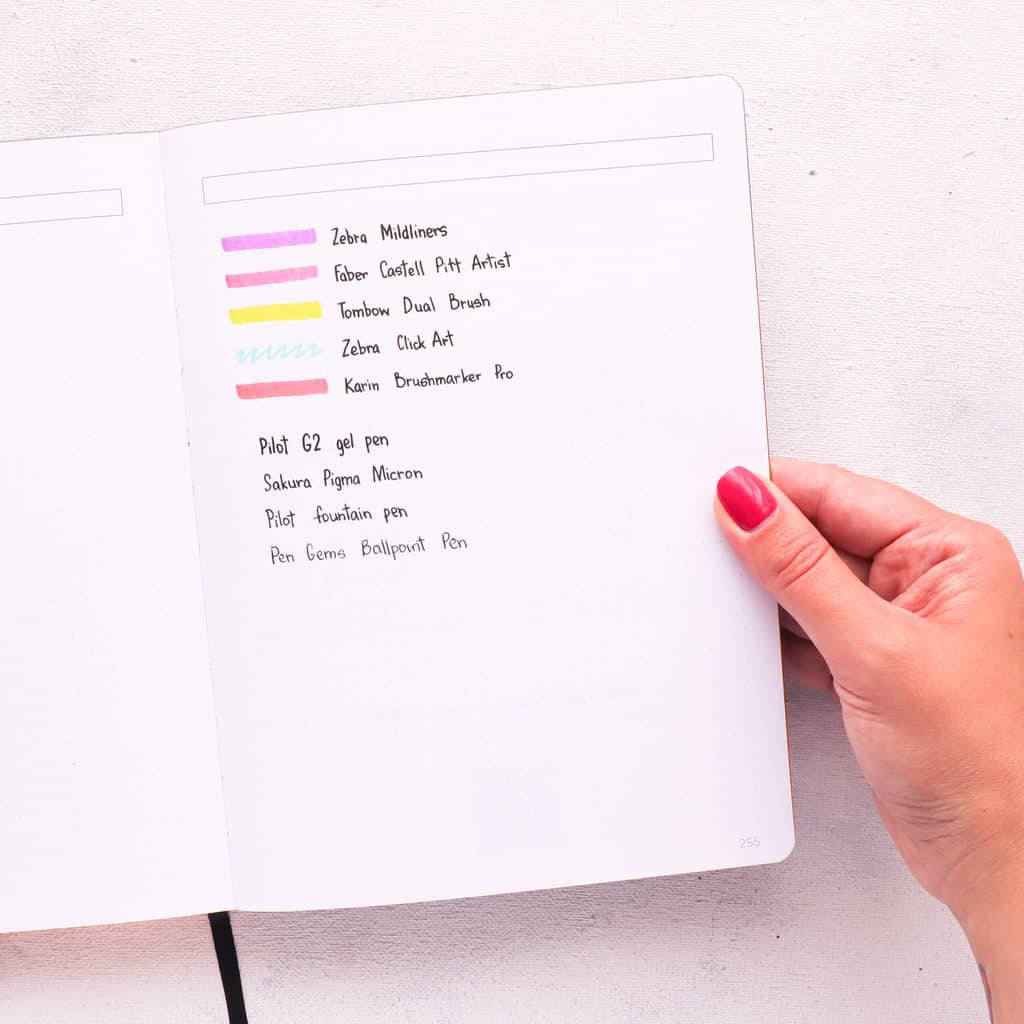 Zebra Mildliners
Faber Castell Pitt Artist
Tombow Dual Brush
Zebra Click Art
Karin Brushmarker Pro
Pilot G2 gel pen
Sakura Pigma Micron
Pilot fountain pen
Pen Gems Ballpoint Pen
255